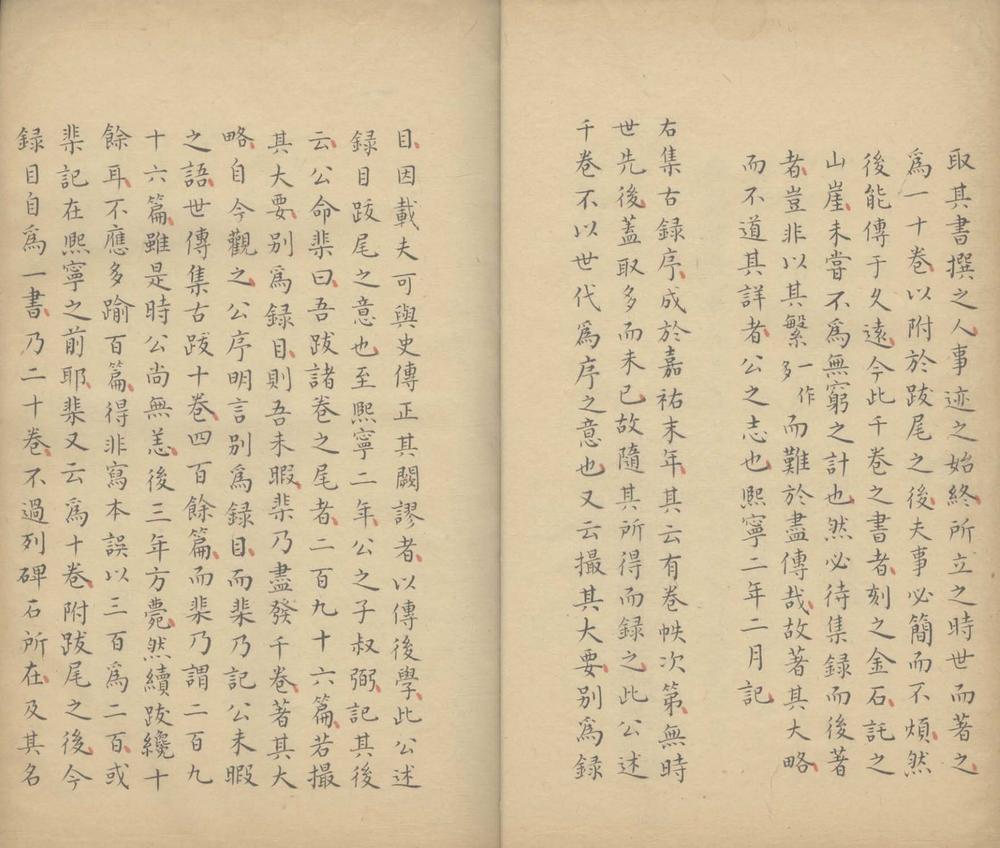 取其書撰之人事迹之始終所立之時世而著之
爲一十卷以附於跋尾之後夫事必簡而不煩然
後能傳于久遠今此千卷之書者刻之金石託之
山崖未嘗不爲無窮之計也然必待集録而後著
者豈非以其繁一作多而難於盡傳哉故著其大略
而不道其詳者公之志也熙寧二年二月記
右集古録序成於嘉祐末年其云有卷帙次第無時
世先後蓋取多而未已故隨其所得而録之此公述
千卷不以世代爲序之意也又云撮其大要別爲録
目因載夫可與史傳正其闕謬者以傳後學此公述
録目跋尾之意也至熙寧二年公之子叔弼記其後
云公命棐曰吾跋諸卷之尾者二百九十六篇若撮
其大要別爲録目則吾未暇棐乃盡發千卷著其大
略自今觀之公序明言別爲録目而棐乃記公未暇
之語世傳集古跋十卷四百餘篇而棐乃謂二百九
十六篇雖是時公尚無恙後三年方薨然續跋纔十
餘耳不應多踰百篇得非寫本誤以三百爲二百或
棐記在熙寧之前耶棐又云爲十卷附跋尾之後今
録目自爲一書乃二十卷不過列碑石所在及其名